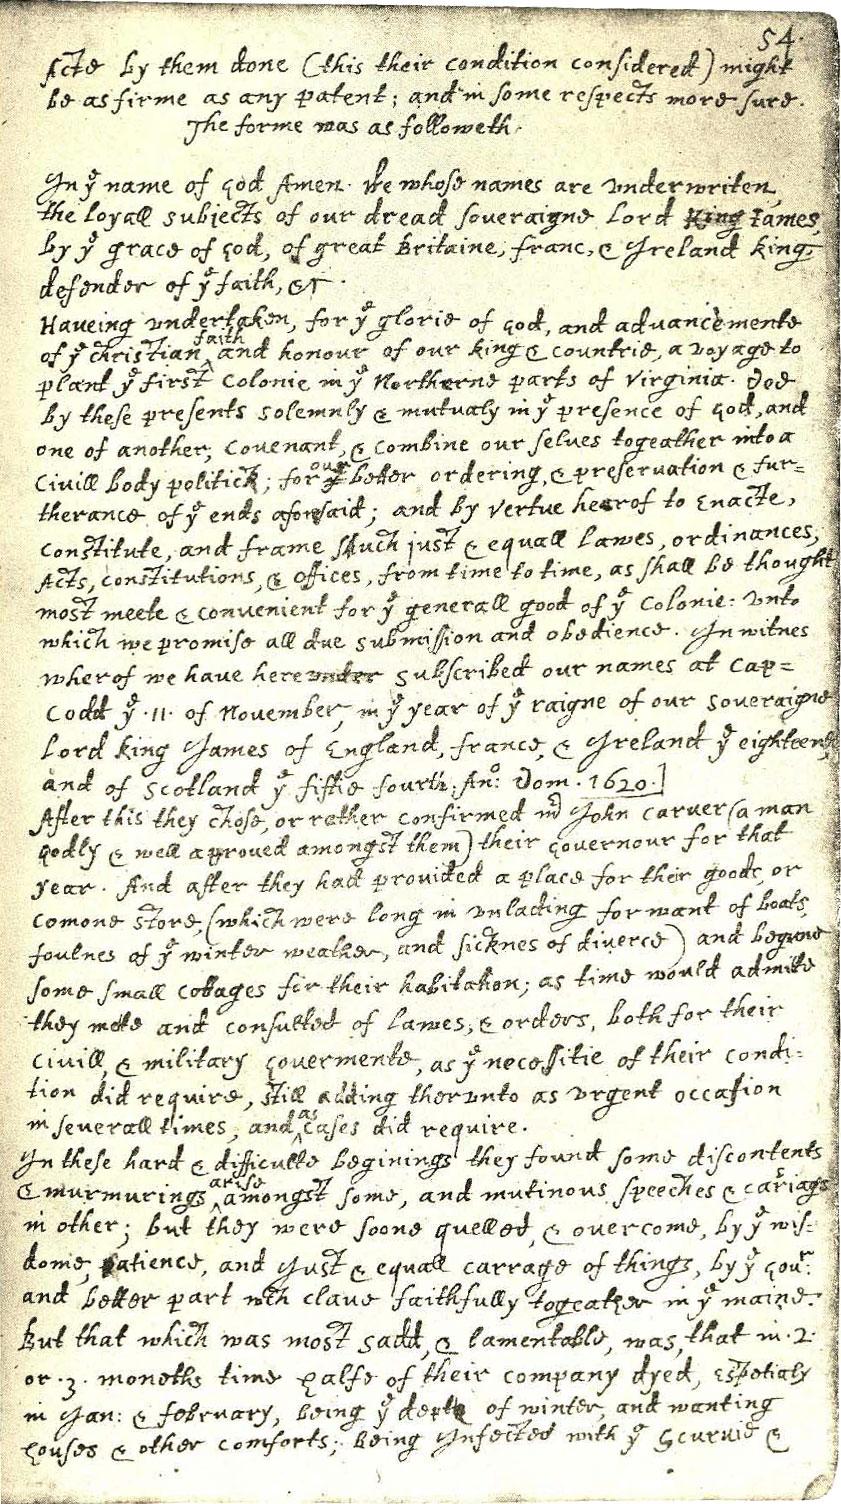 54.
Acts by them done (this their condition considered) might
be as firme as any patent; and in some respects more sure.
The forme was as followeth.
In yͤ name of god Amen. We whose names are underwriten,
the loyall subjects of our dread soveraigne Lord King James,
by yͤ grace of god, of great Britaine, franc, & Ireland king,
defender of yͤ faith, &c.
Haveing undertaken, for yͤ glorie of god, and advancemente
of yͤ christian faith and honour of our king & countrie, a voyage to
plant yͤ first colonie in yͤ Northerne parts of Virginia. Doe
by these presents solemnly & mutualy in yͤ presence of god, and
one of another; covenant, & combine our selves togeather into a
civill body politick; for our better ordering, & preservation & fur=
therance of yͤ ends aforesaid; and by vertue hearof to enacte,
constitute, and frame such just & equall lawes, ordinances,
Acts, constitutions, & offices, from time to time, as shall be thought
most meete & convenient for yͤ generall good of yͤ Colonie: unto
which we promise all due submission and obedience. In witnes
wherof we have hereunder subscribed our names at Cap=
Codd yͤ .11. of November, in yͤ year of yͤ raigne of our soveraigne
Lord king James of England, france, & Ireland yͤ eighteenth
and of Scotland yͤ fiftie fourth. Anº: Dom. 1620.]
After this they chose, or rather confirmed mʳ John Carver (a man
godly & well approved amongst them) their governour for that
year. And after they had provided a place for their goods, or
comone store, (which were long in unlading for want of boats,
foulnes of yͤ winter weather, and sicknes of diverce) and begune
some small cottages for their habitation; as time would admitte
they mete and consulted of lawes, & orders, both for their
civill, & military govermente, as yͤ necessitie of their condi=
tion did require, still adding therunto as urgent occasion
in severall times, and as cases did require.
In these hard & difficulte beginings they found some discontents
& murmurings arise amongst some, and mutinous speeches & cariags
in other; but they were soone quelled, & overcome, by yͤ wis=
dome, patience, and just & equall carrage of things, by yͤ Govʳ:
and better part wᶜh clave faithfully togeather in yͤ maine.
But that which was most sadd, & lamentable, was, that in .2.
or .3. moneths time halfe of their company dyed, espetialy
in Jan: & february, being yͤ depth of winter, and wanting
houses & other comforts; being Infected with yͤ scurvie &